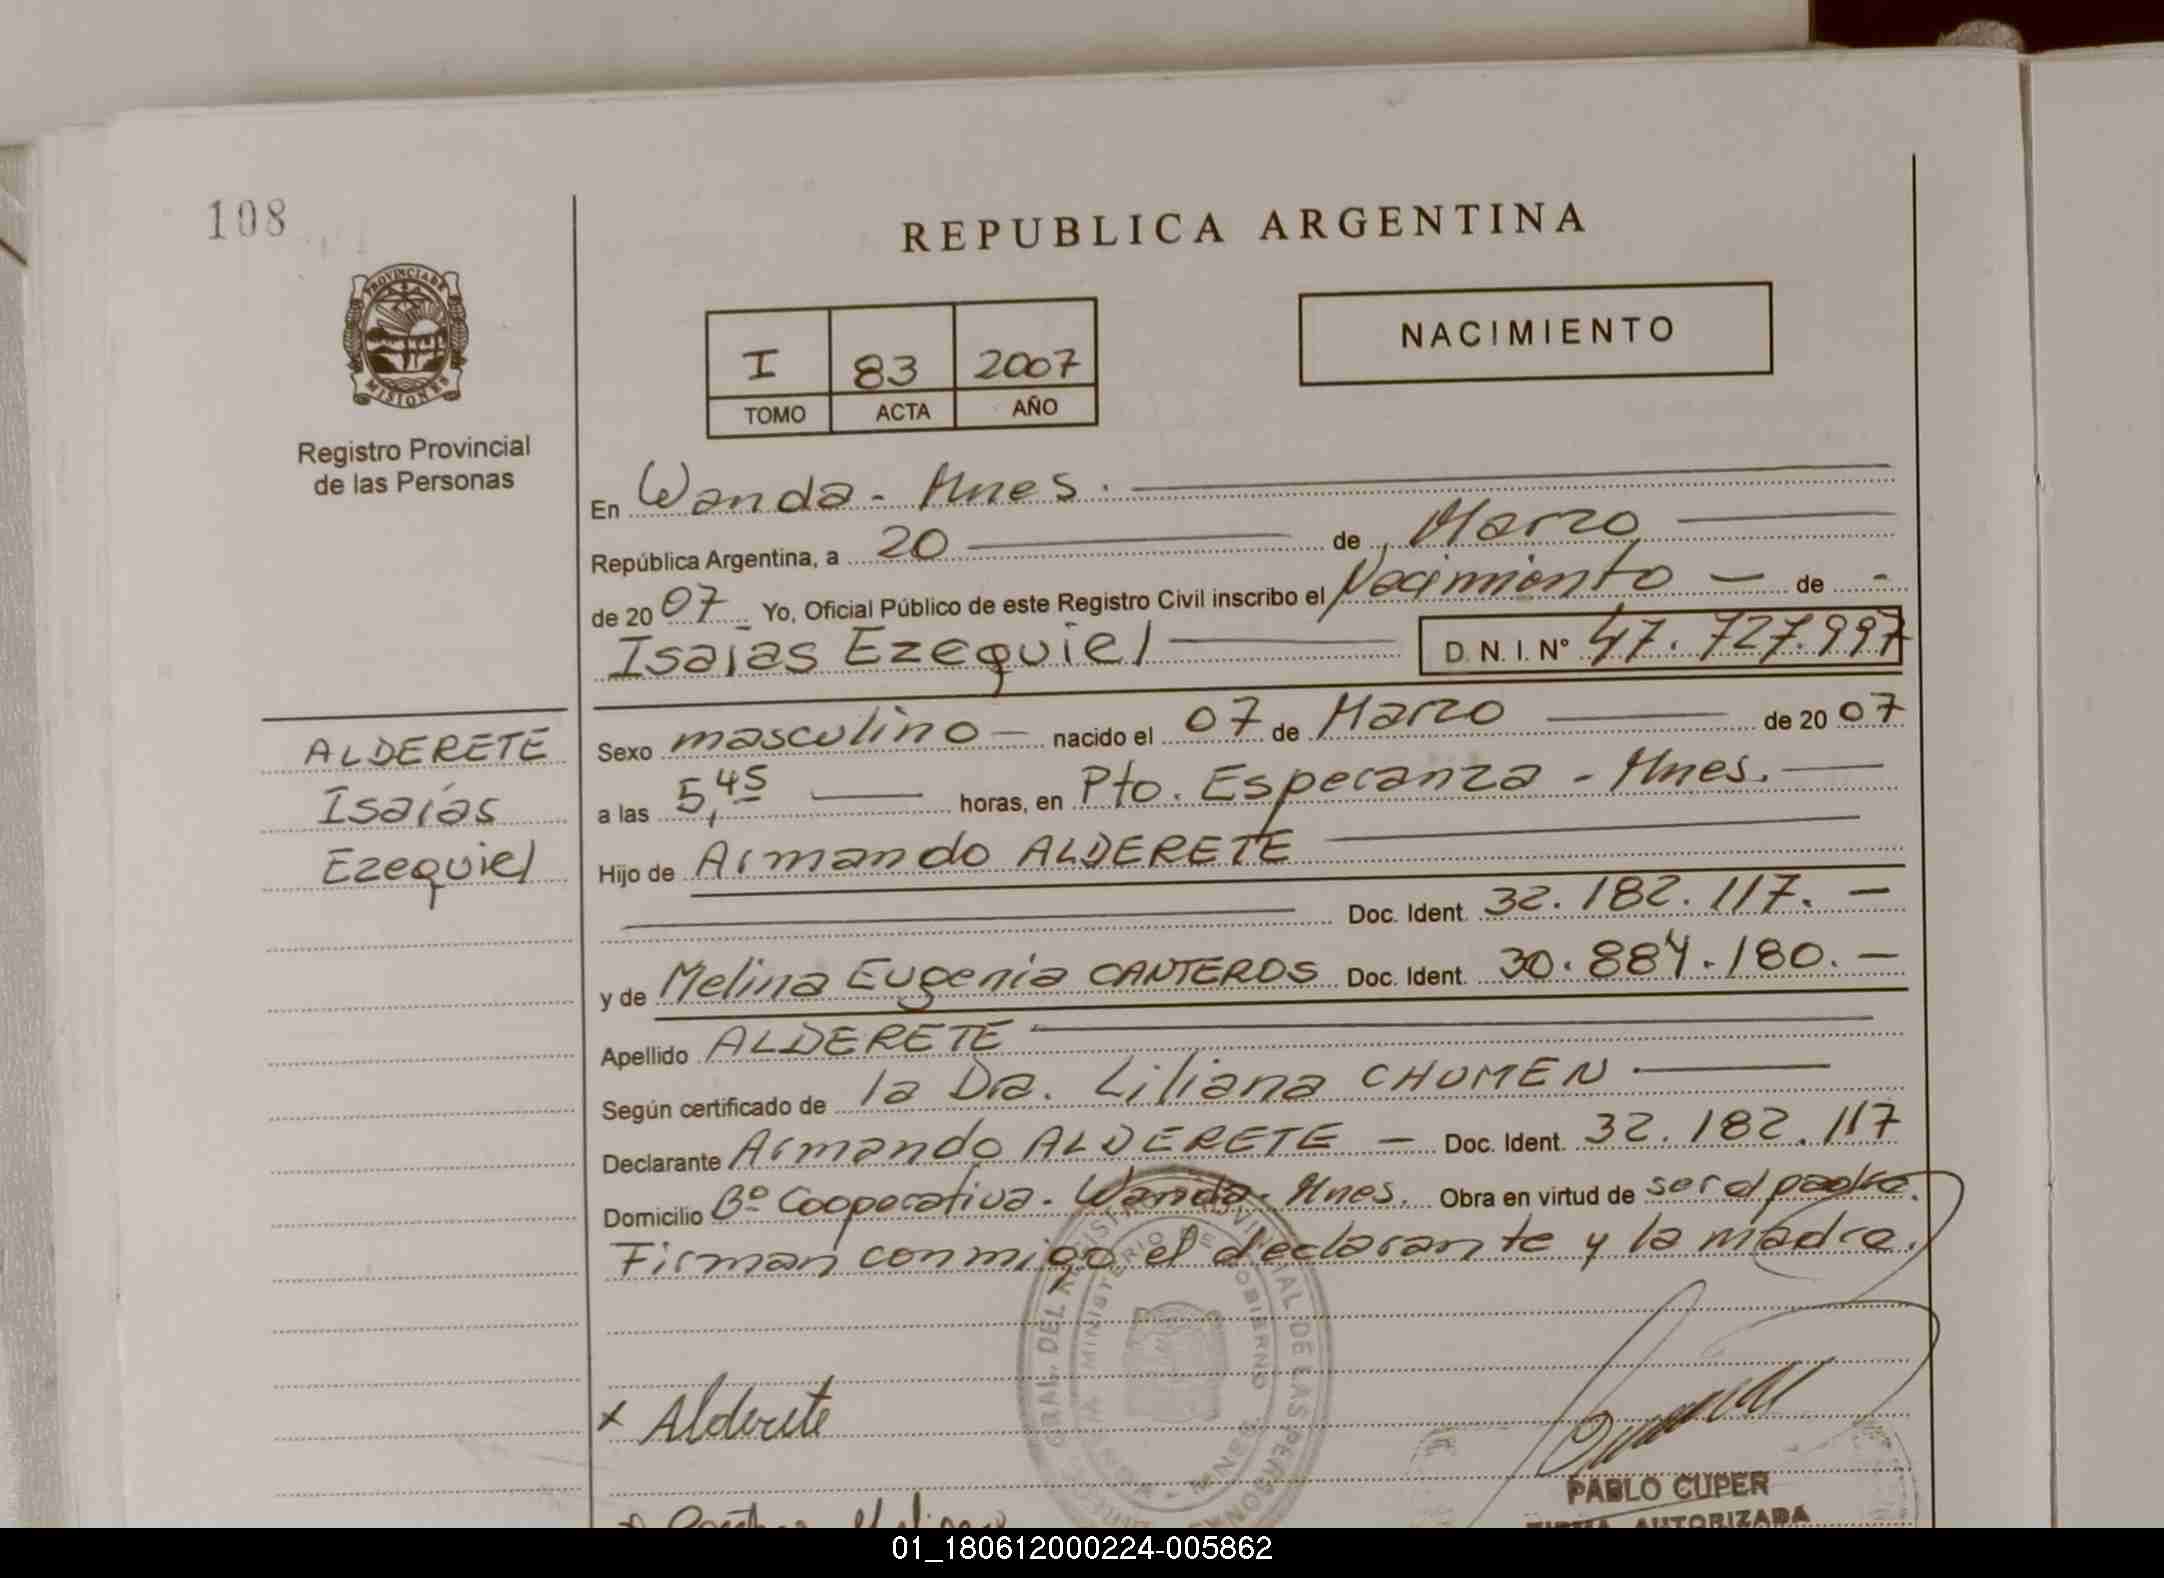 108
PROVINCIA DE
MISIONES
Registro Provincial
de las Personas
REPUBLICA ARGENTINA
I 83 2007
TOMO ACTA AÑO
NACIMIENTO
En Wanda - Mnes.
República Argentina, a 20 de Marzo
de 2007 Yo, Oficial Público de este Registro Civil inscribo el Nacimiento - de -
Isaías Ezequiel D. N. I. Nº 47.727.997
ALDERETE
Isaías
Ezequiel
Sexo masculino - nacido el 07 de Marzo de 2007
a las 5,45 horas, en Pto. Esperanza - Mnes.
Hijo de Armando ALDERETE
Doc. Ident. 32.182.117. -
y de Melina Eugenia CANTEROS Doc. Ident. 30.884.180. -
Apellido ALDERETE
Según certificado de la Dra. Liliana CHOMEN
Declarante Armando ALDERETE - Doc. Ident. 32.182.117
Domicilio Bº Cooperativa. Wanda. Mnes. Obra en virtud de ser el padre.
Firman conmigo el declarante y la madre.
x Alderete
PABLO CUPER
FIRMA AUTORIZADA
01_180612000224-005862